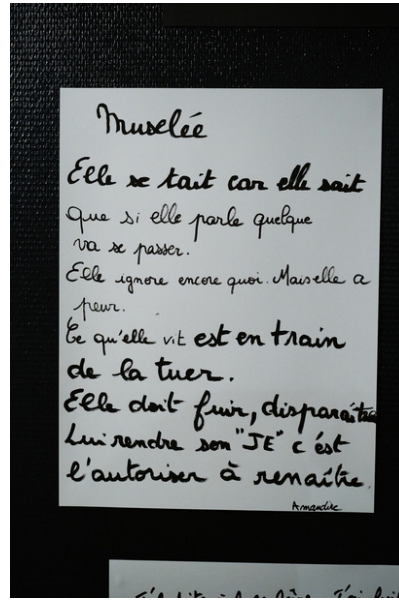 Muselée
Elle se tait car elle sait
Que si elle parle quelque
va se passer.
Elle ignore encore quoi. Mais elle a
peur.
Ce qu'elle vit est en train
de la tuer.
Elle doit fuir, disparaître
Lui rendre son "JE" c'est
l'autoriser à renaître.
Amandine